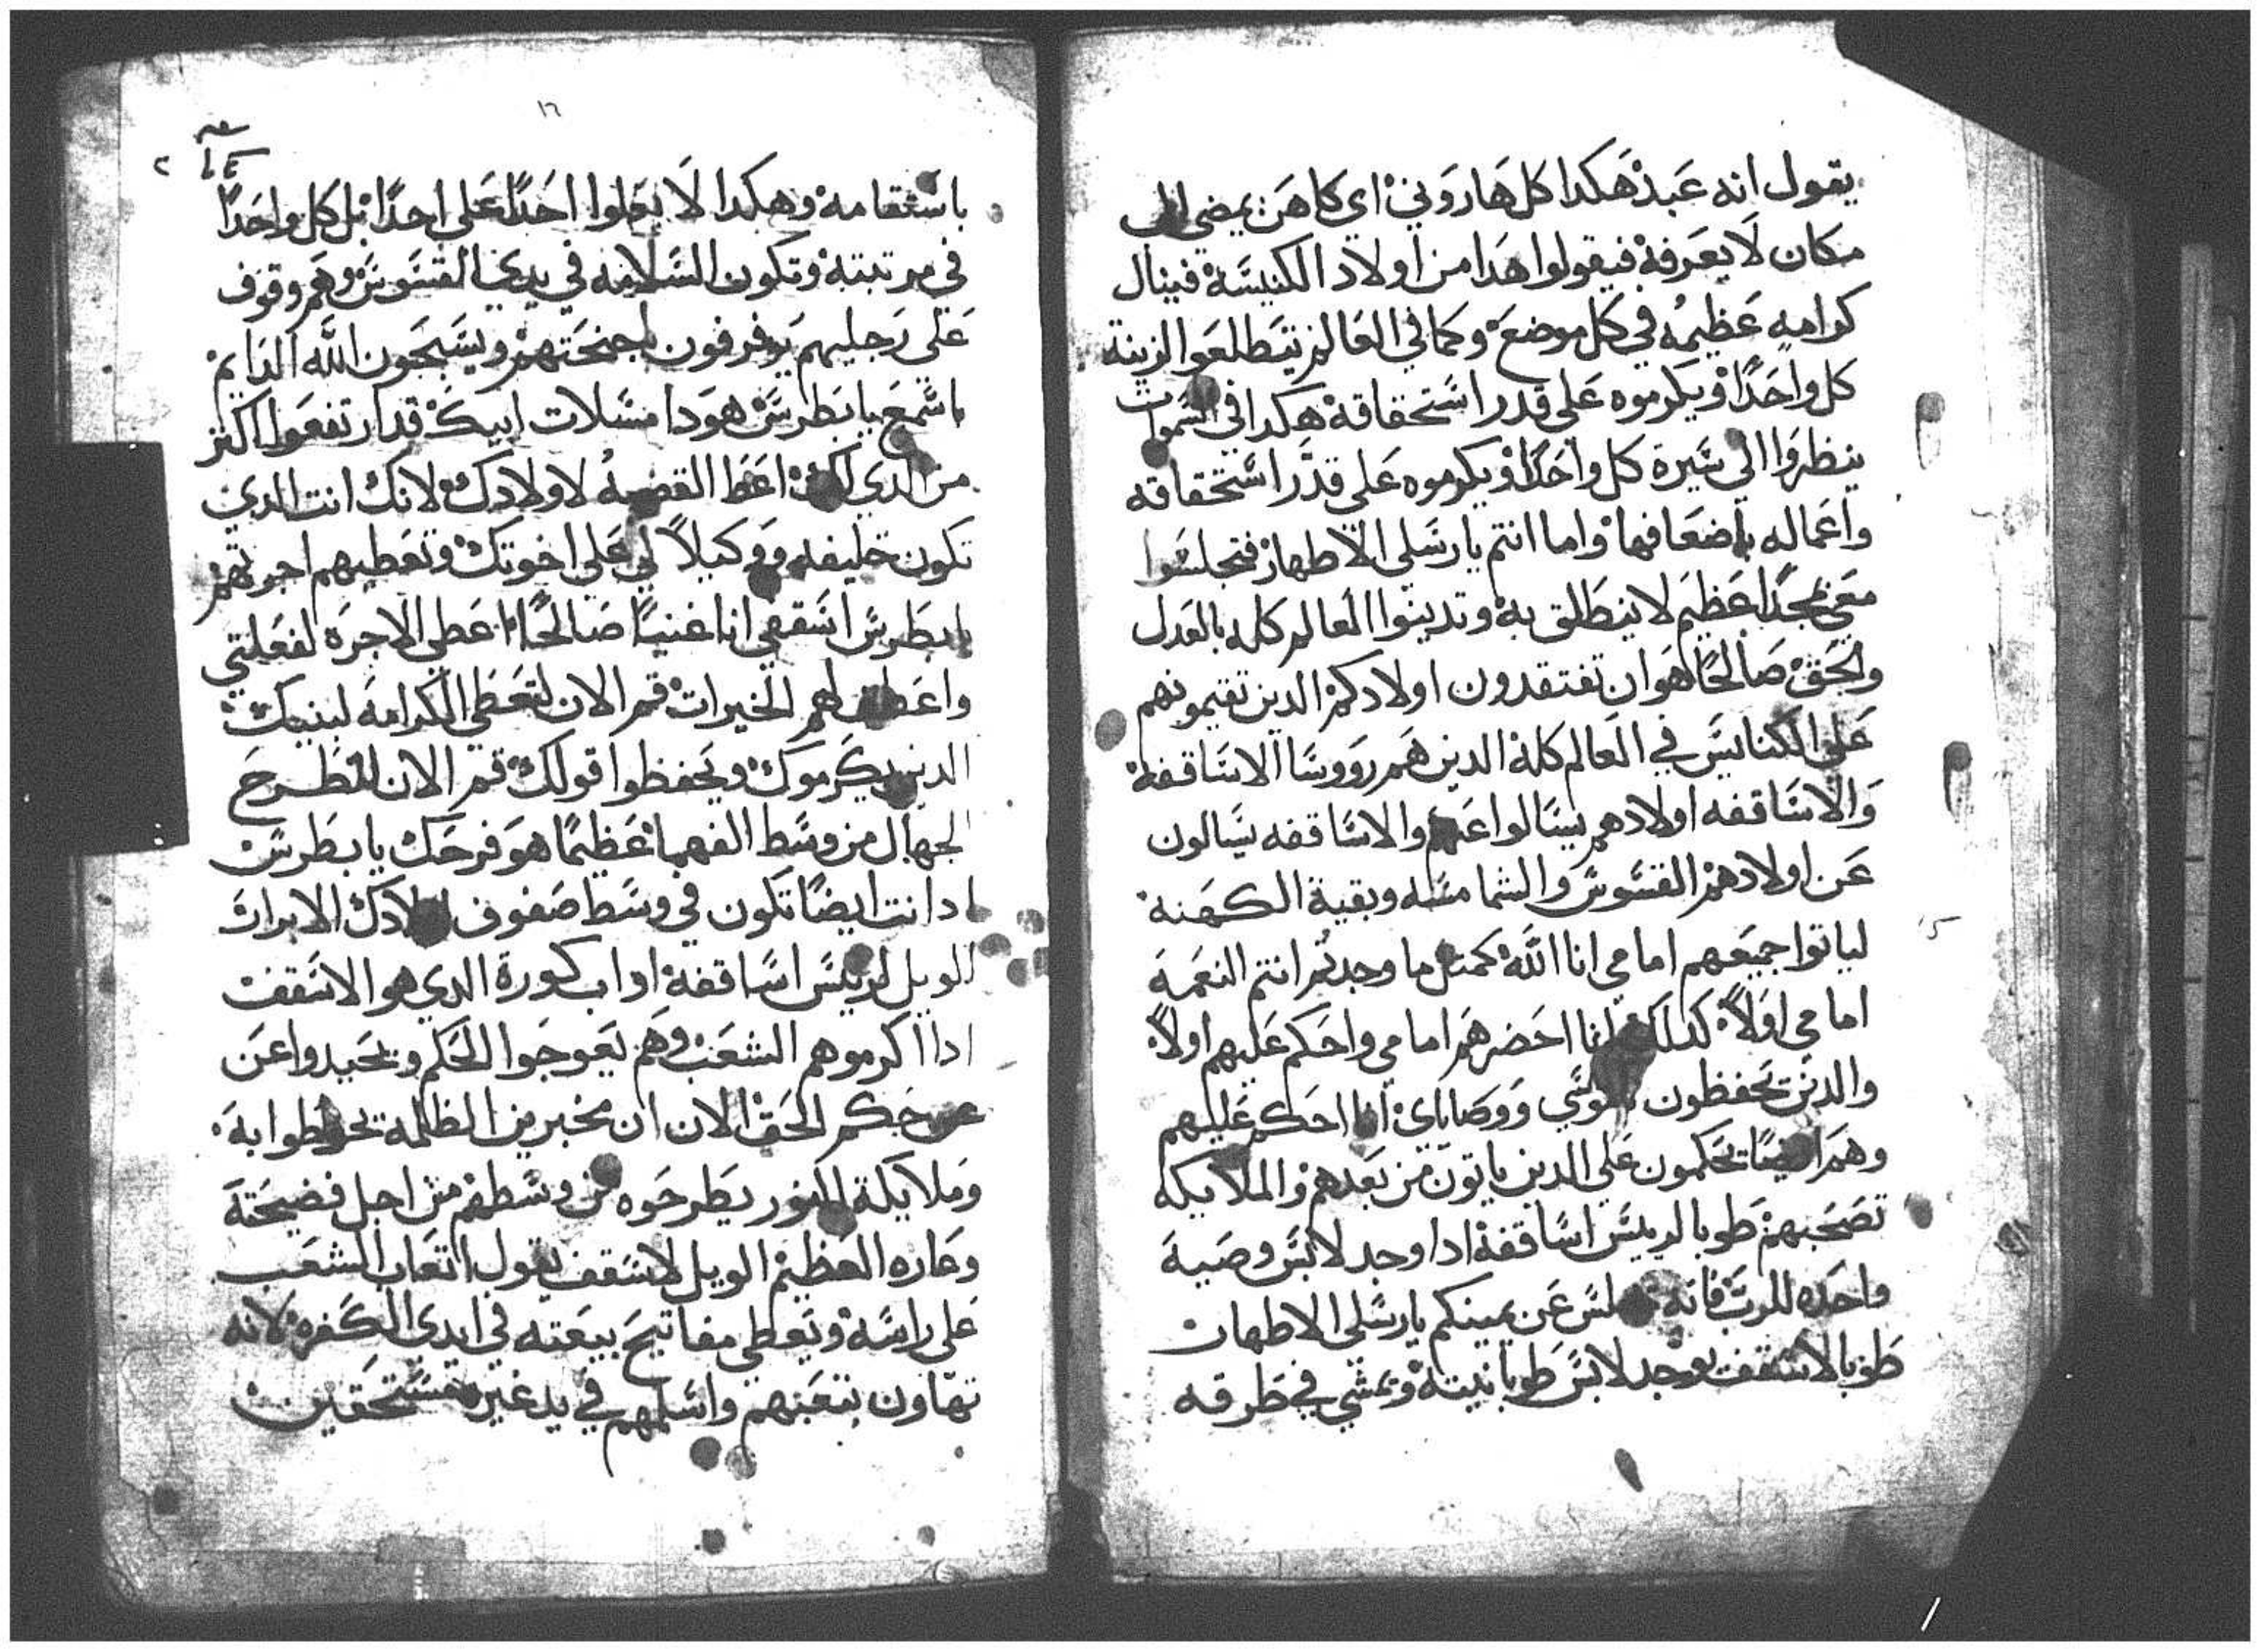 يقول انه عبد هكدا كل هاروني اي كاهن يمضي الى
مكان لا يعرفه فيقولوا هدا من اولاد الكنيسة فينال
كرامه عظيمه في كل موضع وكما في العالم تيطلعوا الزينة
كل واحدا ويكرموه على قدر استحقاقة هكدا في السموات
ينظروا الي سيرة كل واحدا ويكرموه على قدر استحقاقه
واعماله باضعافها واما انتم يا رسلي الاطهار فتجلسوا
معي مجدا عظيم لا ينطلق به وتدينوا العالم كله بالعدل
والحق صالحا هو ان تفتقدون اولادكم الدين تقيمونهم
على الكنايس في العالم كله الدين هم رووسا الاساقفة
والاساقفه اولادهم يسالوا عنهم والاساقفه يسالون
عن اولادهم القسوس والشمامسه وبقية الكهنة
لياتوا جميعهم امامي انا الله كمثل ما وجدتم انتم النعمة
امامي اولا كدلك انا احضرهم امامي واحكم عليهم اولا
والدين يحفظون ووصاياي انا احكم عليهم
وهم ايضا يحكمون علي الدين ياتون من بعدهم والملايكه
تصحبهم طوبا لريس اساقفة ادا وجد لابس وصية
واحده للرب فانه يجلس عن يمينكم يا رسلي الاطهار
طوبا لاسقف يوجد لابس طوبانيته ويمشي في طرقه
١٦
٢
باستقامة وهكدا لا يعلوا احدا على احدا بل كل واحدا
في مرتبته وتكون السلامه في يدي القسوس وهم وقوف
على رجليهم يرفرفون باجنحتهم ويسبحون الله الدايم
اسمع يا بطرس هودا مسلات ابيك قد ارتفعوا اكتر
من الدي اعطا القضيه لاولادك لانك انت الدي
تكون خليفه ووكيلا لي على اخوتك وتعطيهم اجرتهم
يا بطرس اسقفي انا غنيا صالحا اعطي الاجرة لفعلتي
واعطي لهم الخيرات قم الان لتعطي الكرامه لبنيك
الدين يكرموك ويحفظوا قولك قم الان لتطرح
الجهال من وسط الفهما عظيما هو فرحك يا بطرس
ادا انت ايضا تكون في وسط صفوف اولادك الابرار
الويل لريس اساقفة او اب كورة الدي هو الاسقف
ادا اكرموهم الشعب وهم يعوجوا الحكم ويحيدوا عن
عن حكم الحق الان ان مخبرين الظلمة يحوطوا به
وملايكة النور يطرحوه من وسطهم من اجل فضيحتة
وعاره العظيم الويل لاسقف يقول اتعاب الشعب
على راسه ويعطي مفاتيح بيعته في ايدي الكفره لانه
تهاون بتعبهم واسلمهم في يد غير مستحقين